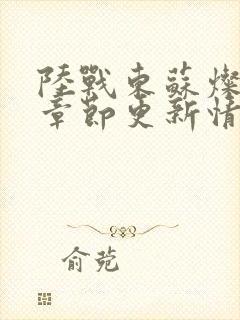 陸戰東蘇燦
章節更新情
俞菀